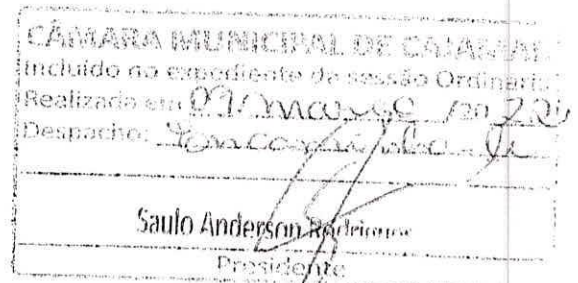 CÂMARA MUNICIPAL DE CAJAMAR
Incluído no expediente da sessão Ordinária
Realizada em 09/março/20
Despacho: Encaminhe-se
Saulo Anderson Rodrigues
Presidente